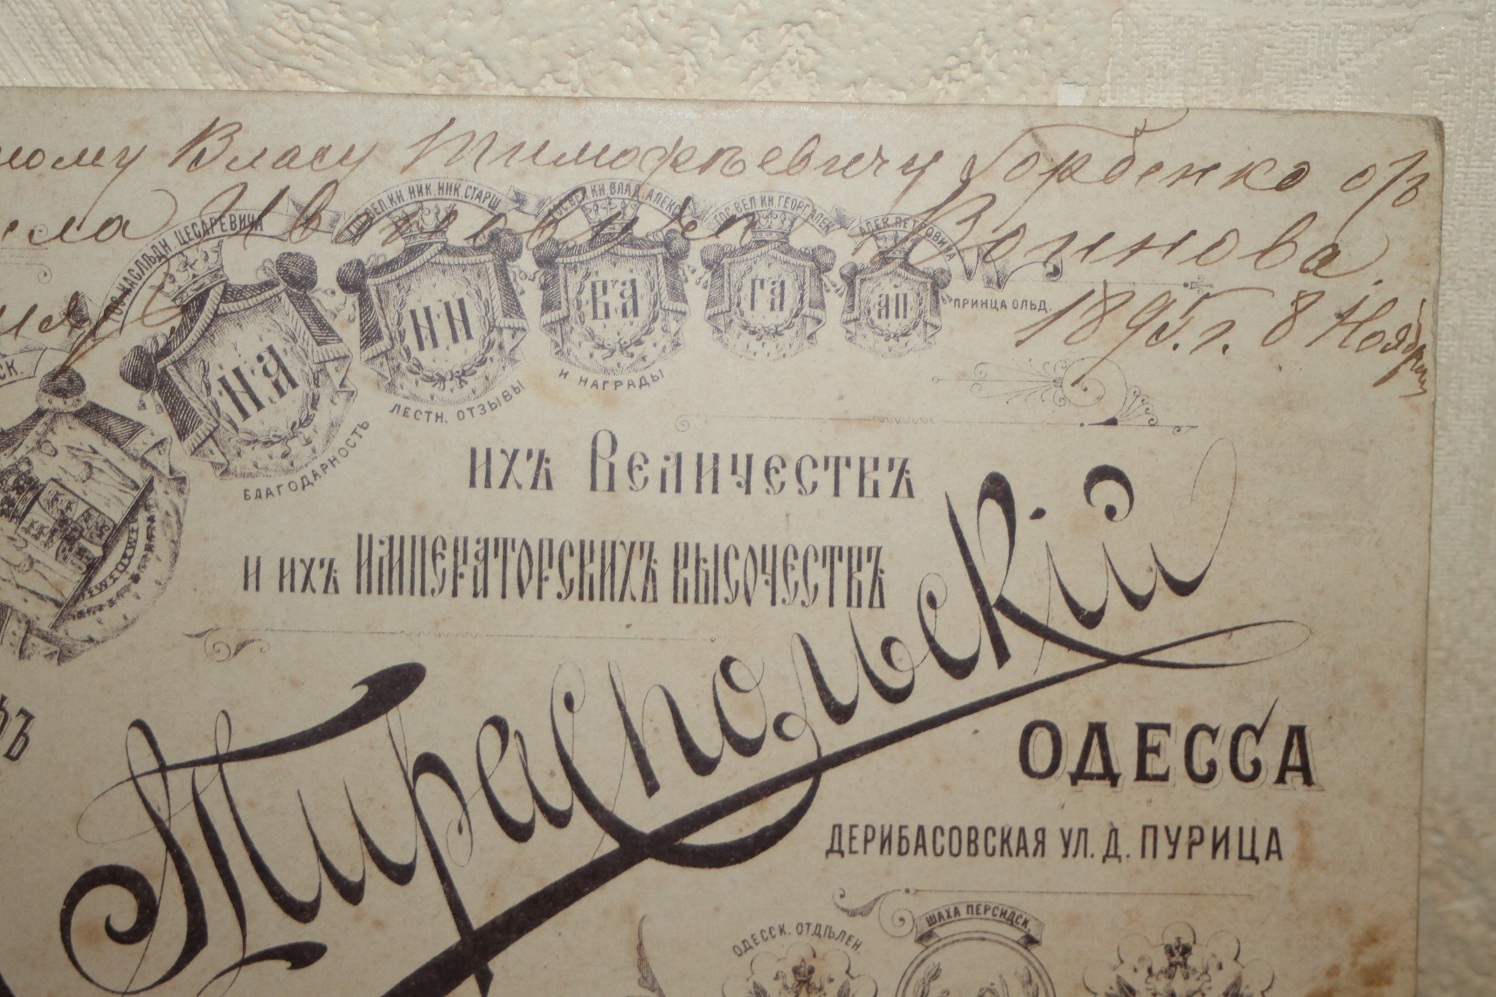 Власу Тимофѣевичу Горбенко отъ
Ивановны Воинова.
1895 г. 8 Ноября
ГОС. НАСЛѢДН. ЦЕСАРЕВИЧА
ВЕЛ. КН. НИК. НИК. СТАРШ.
ВЕЛ. КН. ВЛАД. АЛЕКС.
ГОС. ВЕЛ. КН. ГЕОРГ.
АЛЕК. ПЕТРОВИЧА
ПРИНЦА ОЛЬД.
НА
НН
ВА
ГА
АП
СК.
БЛАГОДАРНОСТЬ
ЛЕСТН. ОТЗЫВЫ
И НАГРАДЫ
ИХЪ ВЕЛИЧЕСТВЪ
И ИХЪ ИМПЕРАТОРСКИХЪ ВЫСОЧЕСТВЪ
Тираспольскій
ОДЕССА
ДЕРИБАСОВСКАЯ УЛ. Д. ПУРИЦА
ОДЕССК. ОТДѢЛЕН.
ШАХА ПЕРСИДСК.